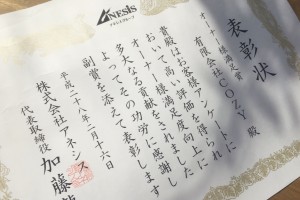 ANESIS
アネシスグループ
表彰状
オーナー様満足賞
有限会社COZY 殿
貴殿はお客様アンケートに
おいて高い評価を得られ
オーナー様満足度向上に
多大なる貢献をされました
よってその功労に感謝し
副賞を添えて表彰します
平成二十八年二月二十六日
株式会社アネシス
代表取締役 加藤